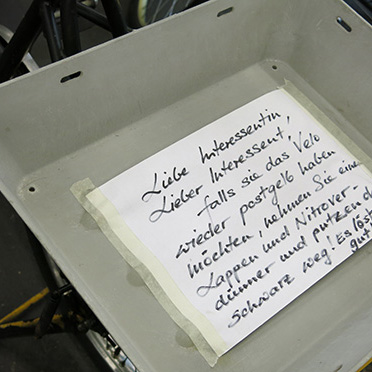 Liebe Interessentin
Lieber Interessent,
falls sie das Velo
wieder postgelb haben
möchten, nehmen Sie eine
Lappen und Nitrover-
dünner und putzen d
Schwarz weg! Es löst
gut